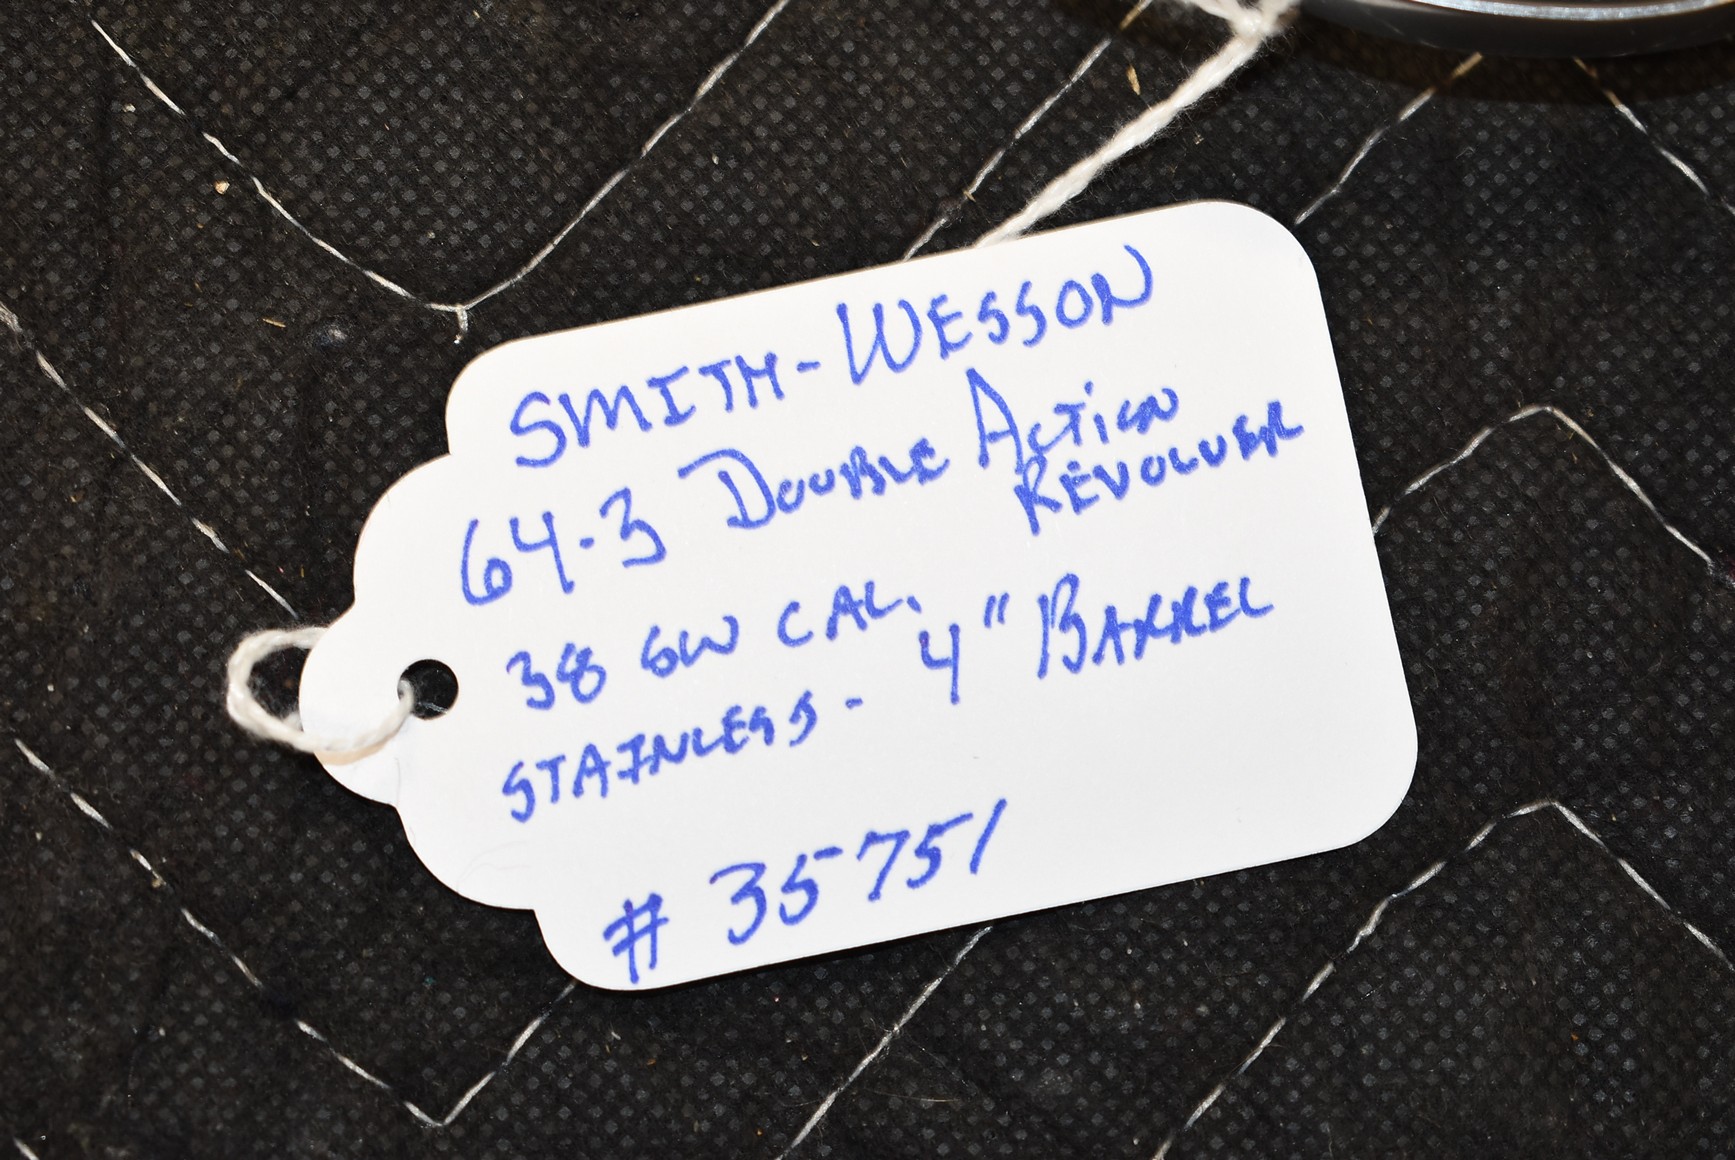 SMITH-WESSON
64-3 DOUBLE ACTION
REVOLVER
38 SW CAL.
STAINLESS - 4" BARREL
# 35751